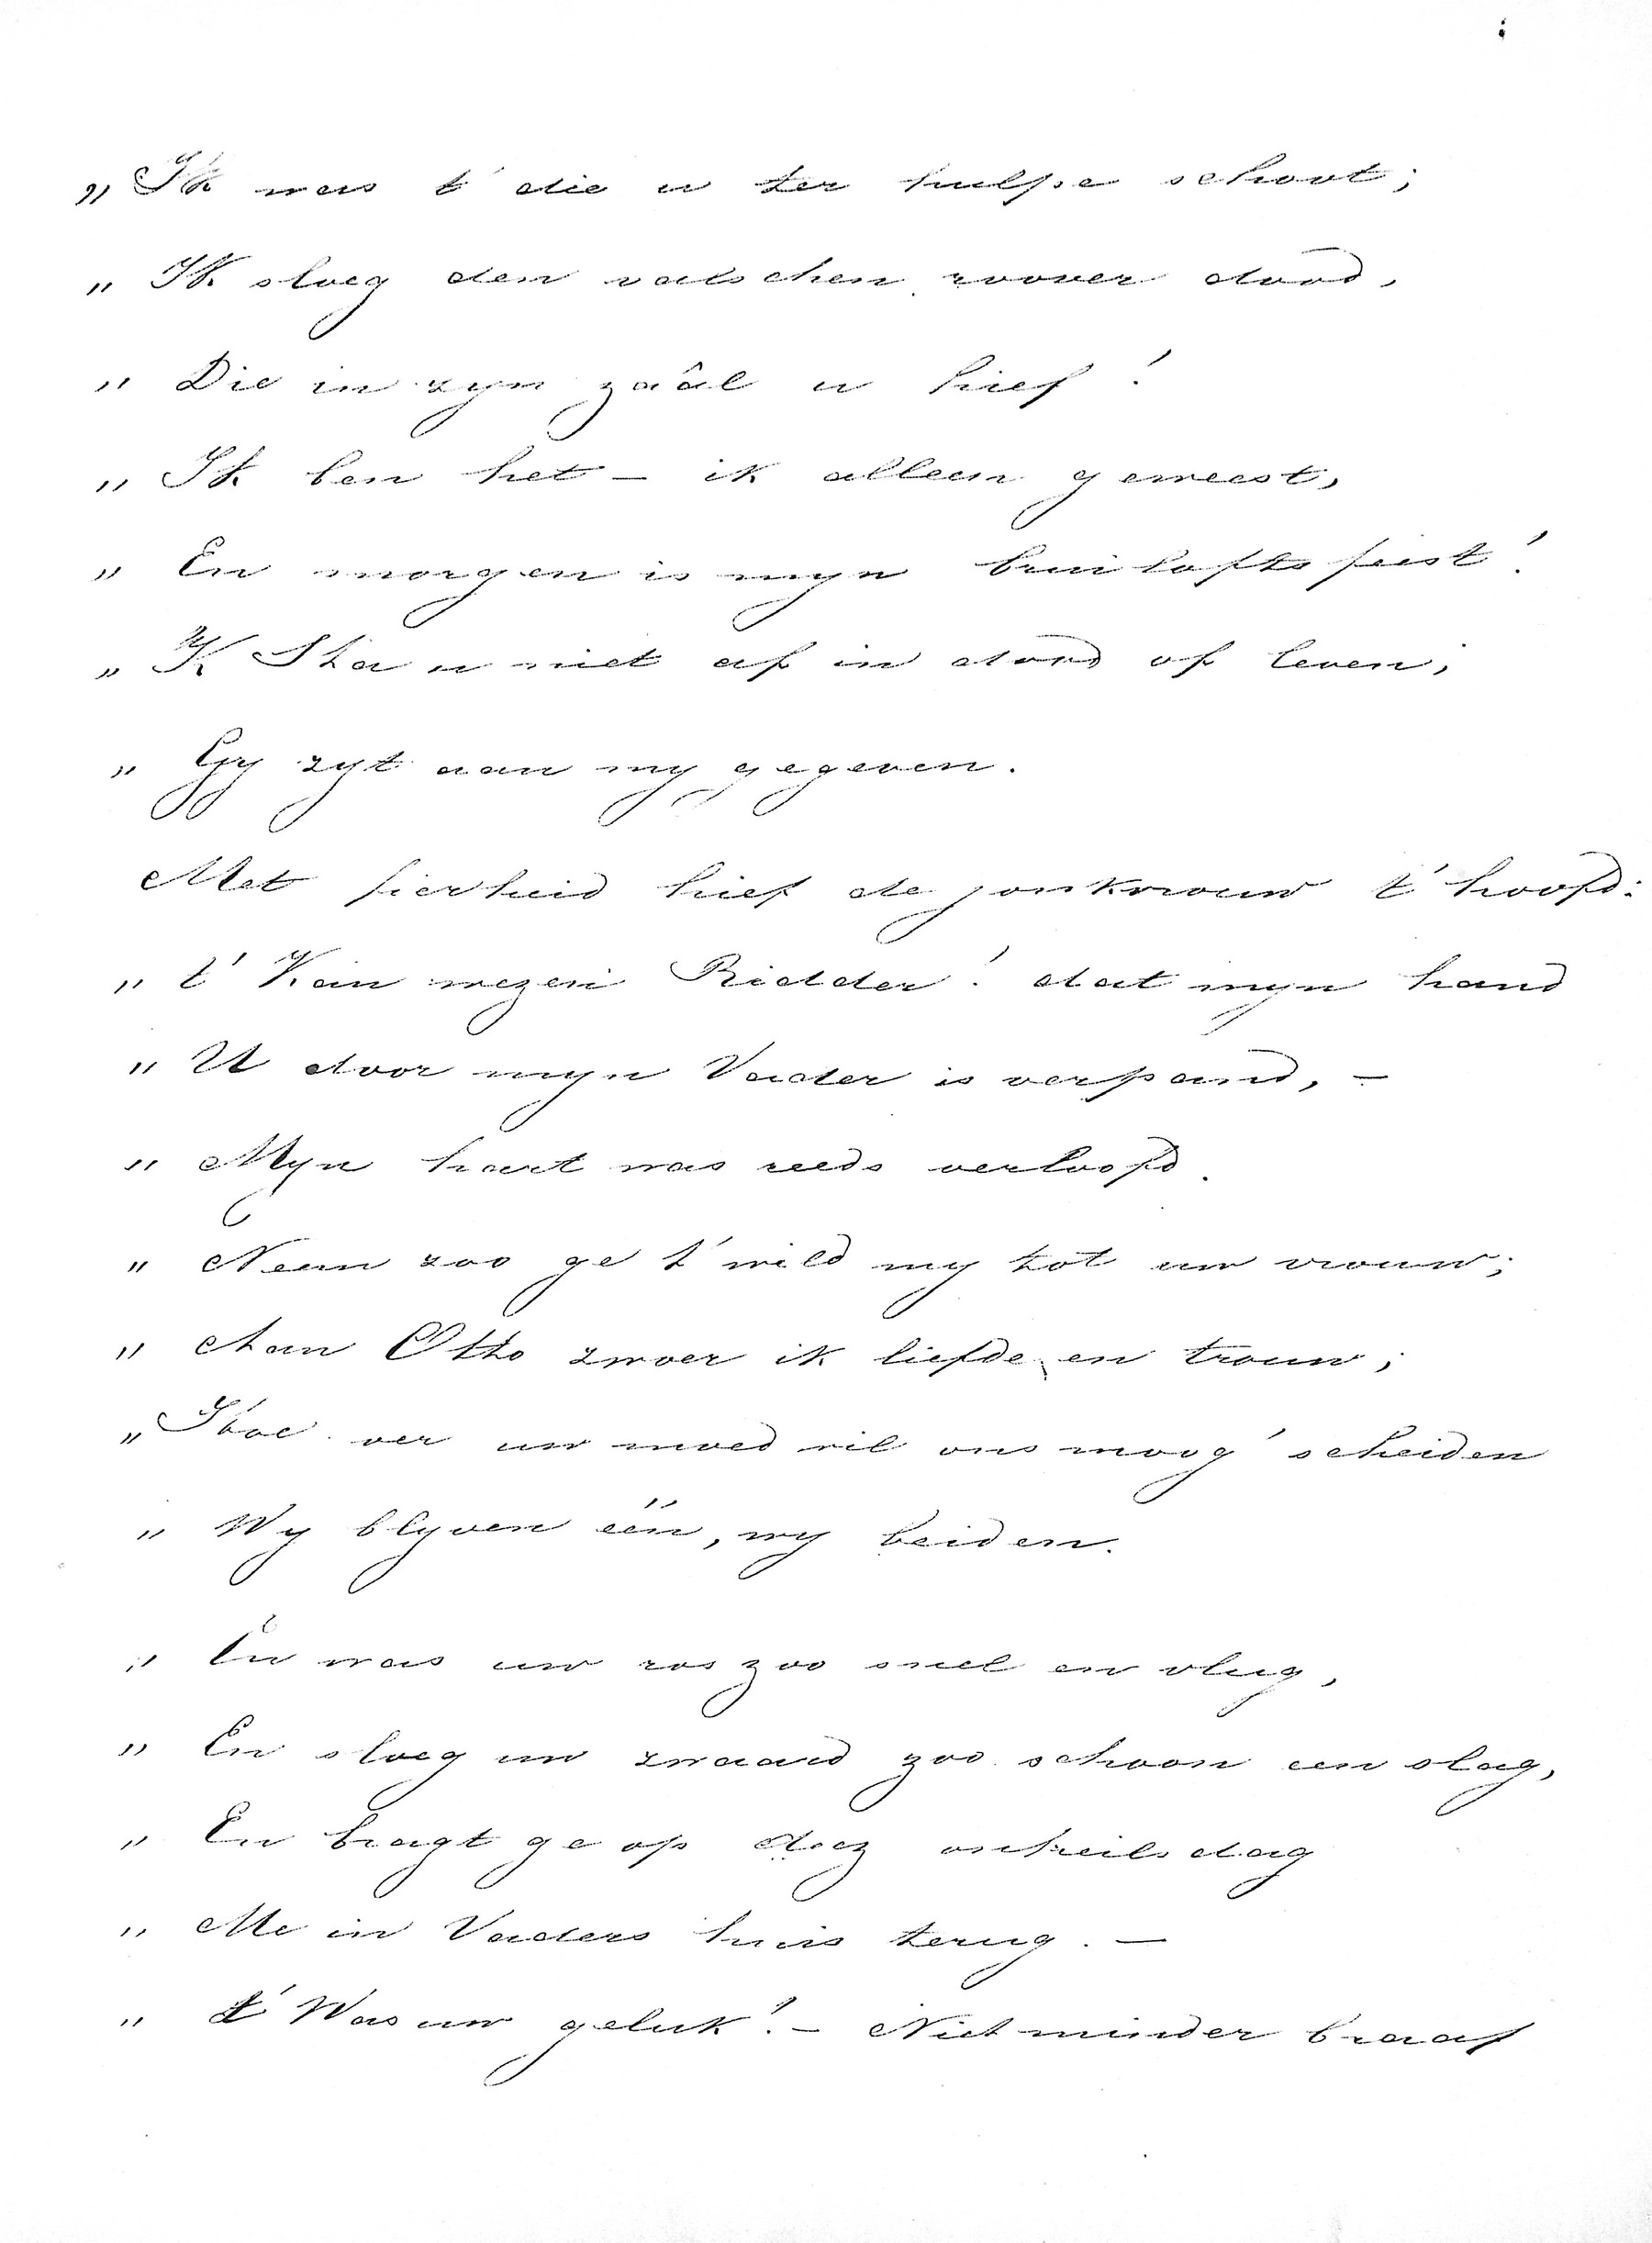 „ Ik was t' die u ter hulpe schoot;
„ Ik sloeg den valschen roover dood,
„ Die in zyn zaâl u hief!
„ Ik ben het – ik alleen geweest,
„ En morgen is myn bruiloftsfeest!
„ 'K Sta u niet af in dood of leven;
„ Gy zyt aan my gegeven.
Met fierheid hief de jonkvrouw t' hoofd:
„ t' Kan wezen Ridder! dat myn hand
„ U door myn Vader is verpand, –
„ Myn hart was reeds verloofd.
„ Neem zoo ge t' wild my tot uw vrouw;
„ Aan Otto zwoer ik liefde en trouw;
„ Hoe ver uw moedwil ons moog' scheiden
„ Wy blyven één, wy beiden.
„ En was uw ros zoo snel en vlug,
„ En sloeg uw zwaard zoo schoon een slag,
„ En bragt ge op deez onheilsdag
„ Me in Vaders huis terug. –
„ t' Was uw geluk! – Niet minder braaf